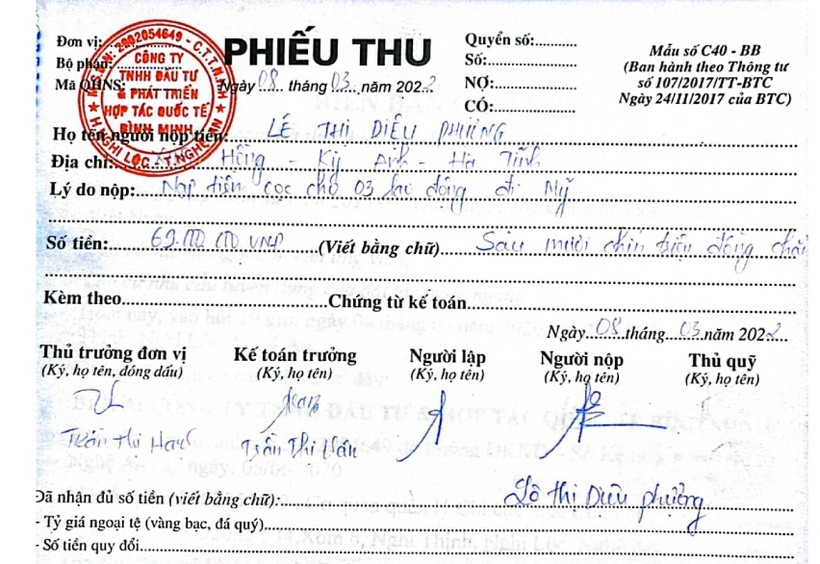 Đơn vị:
Bộ phận:
Mã QHNS:
M.S.D.N: 2902054649 - C.T.T.N.H.H
CÔNG TY
TNHH ĐẦU TƯ
& PHÁT TRIỂN
HỢP TÁC QUỐC TẾ
BÌNH MINH
H. NGHI LỘC - T. NGHỆ AN
PHIẾU THU
Ngày 08 tháng 03 năm 2022
Quyển số:
Số:
NỢ:
CÓ:
Mẫu số C40 - BB
(Ban hành theo Thông tư
số 107/2017/TT-BTC
Ngày 24/11/2017 của BTC)
Họ tên người nộp tiền: LÊ THỊ DIỆU PHƯỢNG
Địa chỉ: Hồng - Kỳ Anh - Hà Tĩnh
Lý do nộp: Nộp tiền cọc cho 03 lao động đi Mỹ
Số tiền: 69.000 000 VNĐ (Viết bằng chữ) Sáu mươi chín triệu đồng chẵn
Kèm theo Chứng từ kế toán
Ngày 08 tháng 03 năm 2022
Thủ trưởng đơn vị Kế toán trưởng Người lập Người nộp Thủ quỹ
(Ký, họ tên, đóng dấu) (Ký, họ tên) (Ký, họ tên) (Ký, họ tên) (Ký, họ tên)
Trần Thị Trần Thị Vân
Lê Thị Diệu Phượng
Đã nhận đủ số tiền (viết bằng chữ):
- Tỷ giá ngoại tệ (vàng bạc, đá quý)
- Số tiền quy đổi